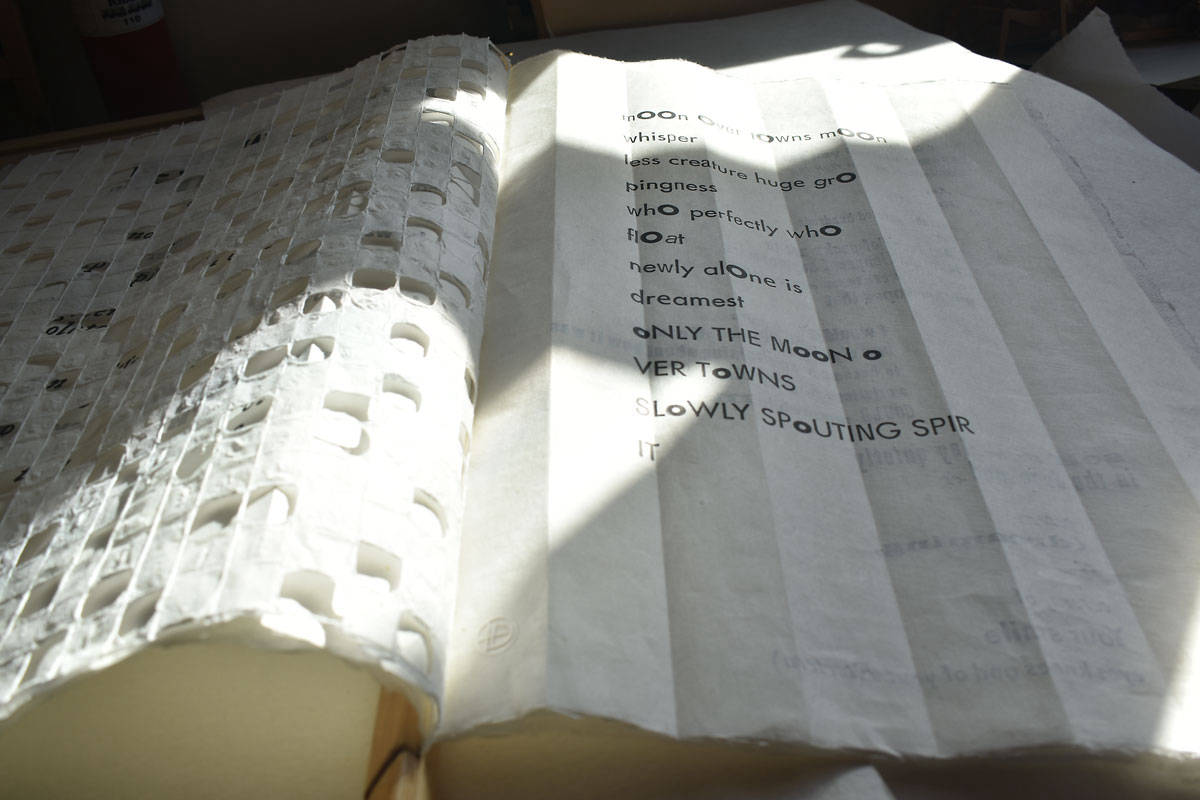 mOOn Over tOwns mOOn
whisper
less creature huge grO
pingness
whO perfectly whO
flOat
newly alOne is
dreamest
oNLY THE MooN o
VER ToWNS
SLoWLY SPoUTING SPIR
IT